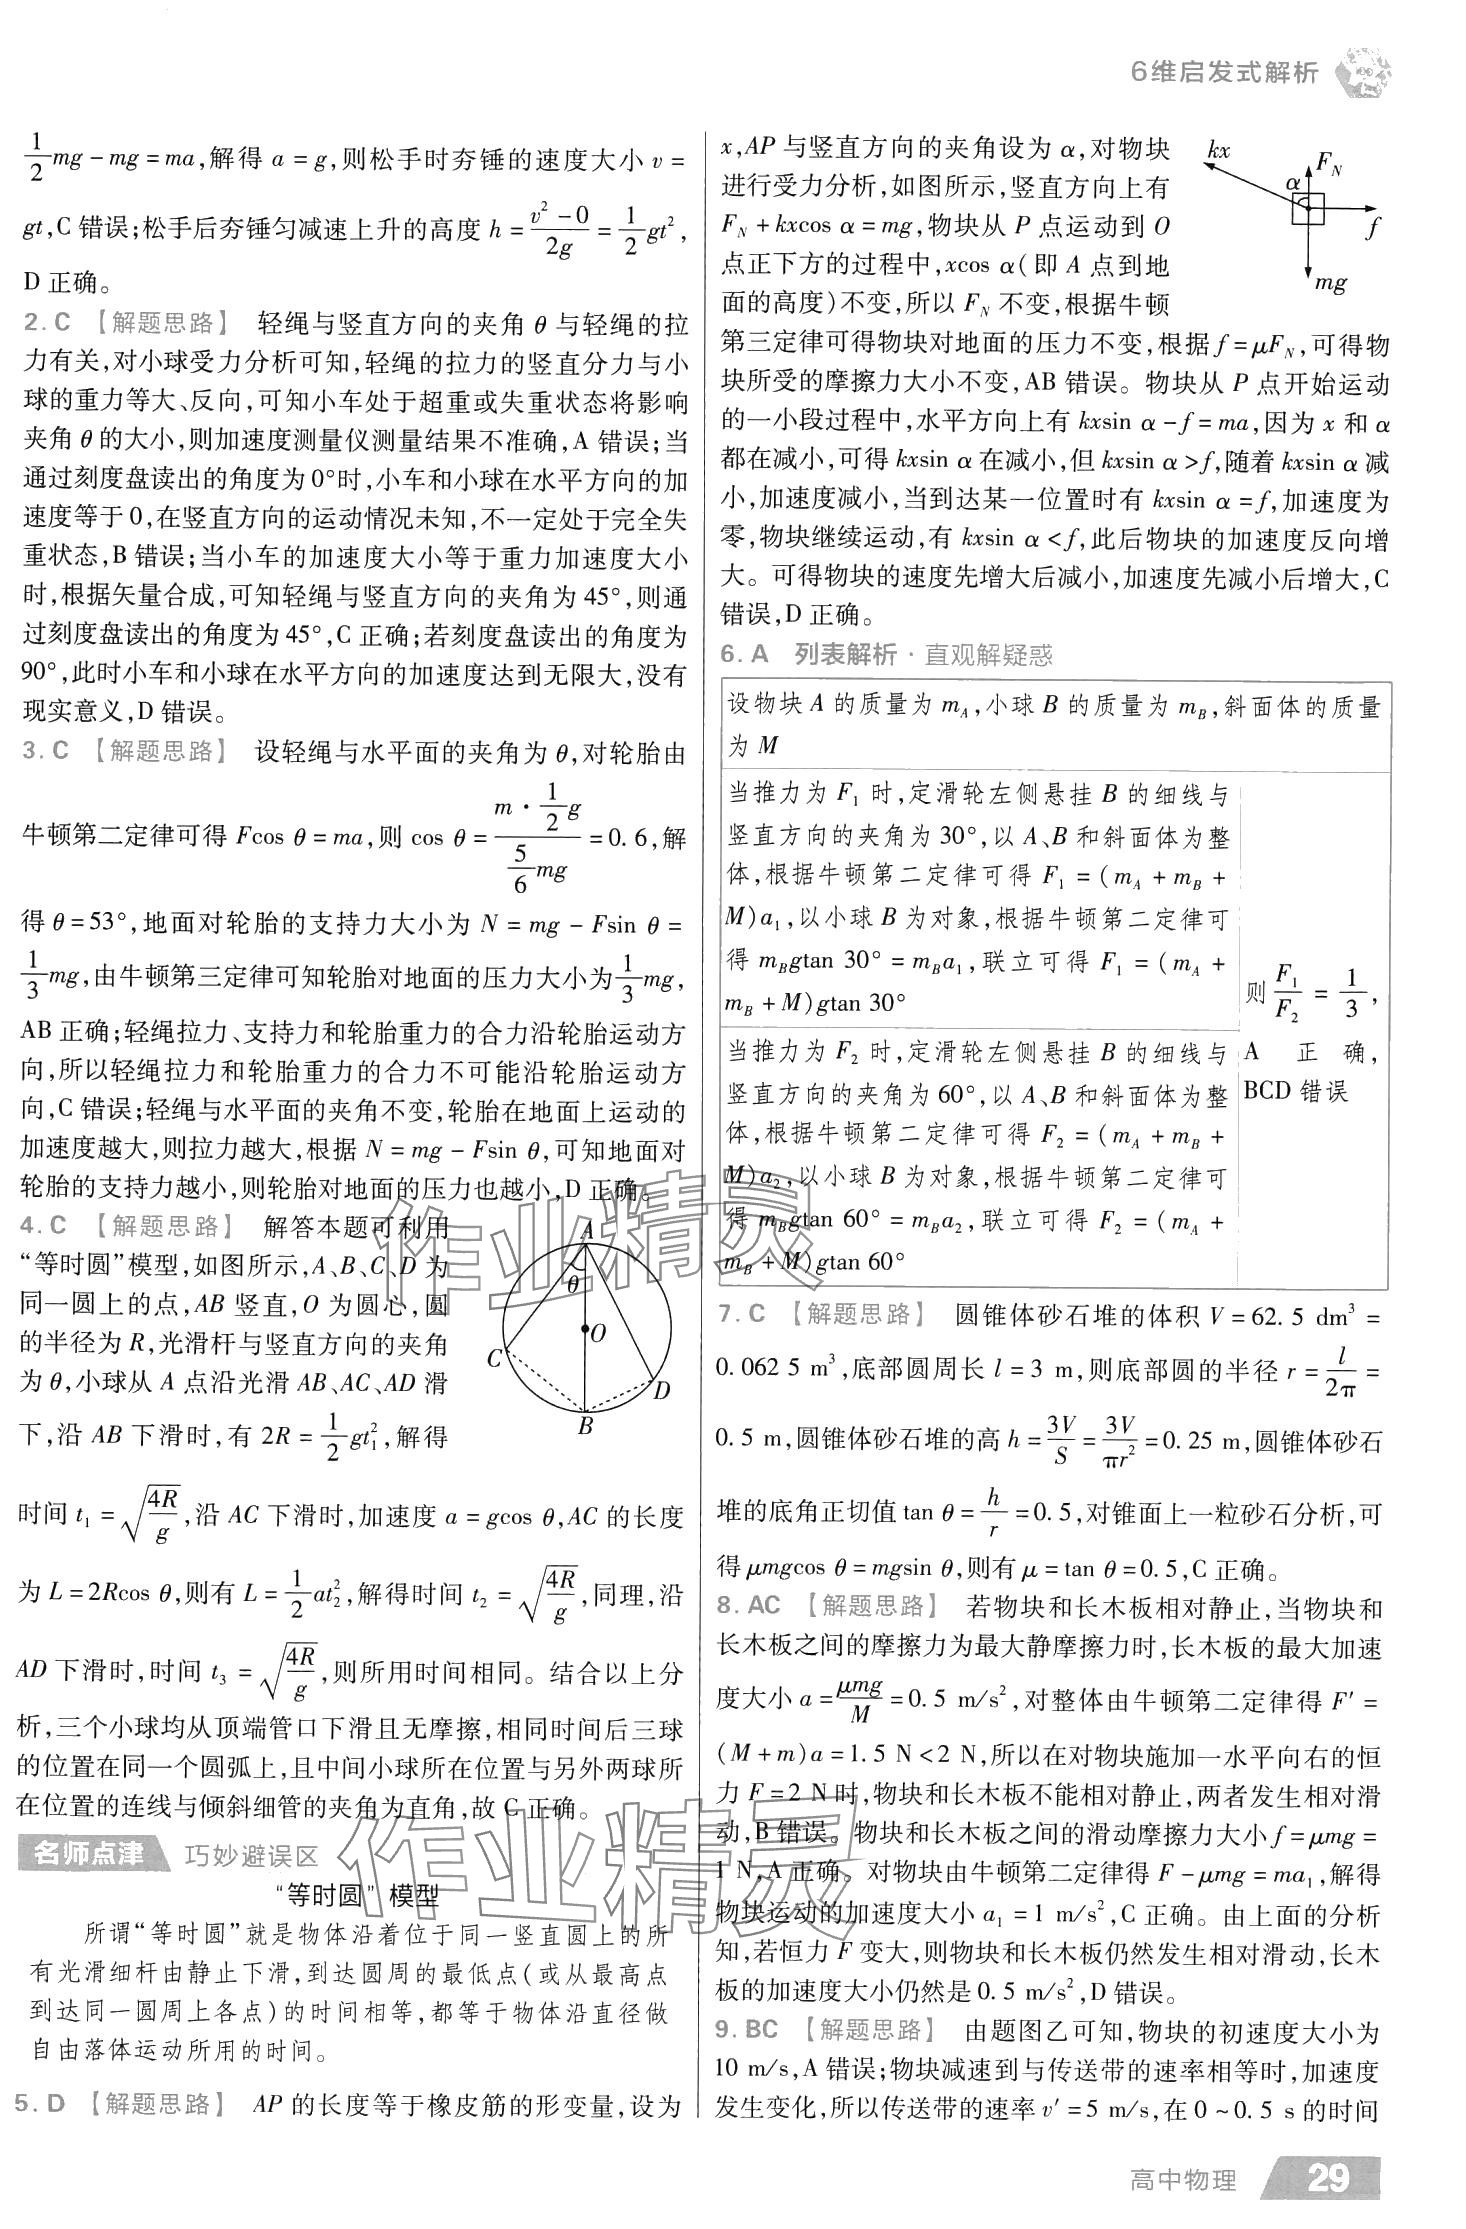 6维启发式解析
$\frac{1}{2}$mg－mg＝ma,解得 a＝g,则松手时夯锤的速度大小 v＝
gt,C 错误;松手后夯锤匀减速上升的高度 h＝$\frac{v^2-0}{2g}$＝$\frac{1}{2}$gt²,
D 正确。
2. C 【解题思路】 轻绳与竖直方向的夹角 θ 与轻绳的拉
力有关,对小球受力分析可知,轻绳的拉力的竖直分力与小
球的重力等大、反向,可知小车处于超重或失重状态将影响
夹角 θ 的大小,则加速度测量仪测量结果不准确,A 错误;当
通过刻度盘读出的角度为 0°时,小车和小球在水平方向的加
速度等于 0,在竖直方向的运动情况未知,不一定处于完全失
重状态,B 错误;当小车的加速度大小等于重力加速度大小
时,根据矢量合成,可知轻绳与竖直方向的夹角为 45°,则通
过刻度盘读出的角度为 45°,C 正确;若刻度盘读出的角度为
90°,此时小车和小球在水平方向的加速度达到无限大,没有
现实意义,D 错误。
3. C 【解题思路】 设轻绳与水平面的夹角为 θ,对轮胎由
牛顿第二定律可得 Fcos θ＝ma,则 cos θ＝$\frac{m\cdot\frac{1}{2}g}{\frac{5}{6}mg}$＝0.6,解
得 θ＝53°,地面对轮胎的支持力大小为 N＝mg－Fsin θ＝
$\frac{1}{3}$mg,由牛顿第三定律可知轮胎对地面的压力大小为$\frac{1}{3}$mg,
AB 正确;轻绳拉力、支持力和轮胎重力的合力沿轮胎运动方
向,所以轻绳拉力和轮胎重力的合力不可能沿轮胎运动方
向,C 错误;轻绳与水平面的夹角不变,轮胎在地面上运动的
加速度越大,则拉力越大,根据 N＝mg－Fsin θ,可知地面对
轮胎的支持力越小,则轮胎对地面的压力也越小,D 正确。
4. C 【解题思路】 解答本题可利用
“等时圆”模型,如图所示,A、B、C、D 为
同一圆上的点,AB 竖直,O 为圆心,圆
的半径为 R,光滑杆与竖直方向的夹角
为 θ,小球从 A 点沿光滑 AB、AC、AD 滑
下,沿 AB 下滑时,有 2R＝$\frac{1}{2}$gt₁²,解得
A
θ
O
C
D
B
时间 t₁＝$\sqrt{\frac{4R}{g}}$,沿 AC 下滑时,加速度 a＝gcos θ,AC 的长度
为 L＝2Rcos θ,则有 L＝$\frac{1}{2}$at₂²,解得时间 t₂＝$\sqrt{\frac{4R}{g}}$,同理,沿
AD 下滑时,时间 t₃＝$\sqrt{\frac{4R}{g}}$,则所用时间相同。结合以上分
析,三个小球均从顶端管口下滑且无摩擦,相同时间后三球
的位置在同一个圆弧上,且中间小球所在位置与另外两球所
在位置的连线与倾斜细管的夹角为直角,故 C 正确。
名师点津 巧妙避误区
“等时圆”模型
所谓“等时圆”就是物体沿着位于同一竖直圆上的所
有光滑细杆由静止下滑,到达圆周的最低点(或从最高点
到达同一圆周上各点)的时间相等,都等于物体沿直径做
自由落体运动所用的时间。
5. D 【解题思路】 AP 的长度等于橡皮筋的形变量,设为
x,AP 与竖直方向的夹角设为 α,对物块
进行受力分析,如图所示,竖直方向上有
F_N＋kxcos α＝mg,物块从 P 点运动到 O
点正下方的过程中,xcos α(即 A 点到地
面的高度)不变,所以 F_N 不变,根据牛顿
kx
F_N
α
f
mg
第三定律可得物块对地面的压力不变,根据 f＝μF_N,可得物
块所受的摩擦力大小不变,AB 错误。物块从 P 点开始运动
的一小段过程中,水平方向上有 kxsin α－f＝ma,因为 x 和 α
都在减小,可得 kxsin α 在减小,但 kxsin α＞f,随着 kxsin α 减
小,加速度减小,当到达某一位置时有 kxsin α＝f,加速度为
零,物块继续运动,有 kxsin α＜f,此后物块的加速度反向增
大。可得物块的速度先增大后减小,加速度先减小后增大,C
错误,D 正确。
6. A 列表解析·直观解疑惑
设物块 A 的质量为 m_A,小球 B 的质量为 m_B,斜面体的质量
为 M
当推力为 F₁ 时,定滑轮左侧悬挂 B 的细线与
竖直方向的夹角为 30°,以 A、B 和斜面体为整
体,根据牛顿第二定律可得 F₁＝(m_A＋m_B＋
M)a₁,以小球 B 为对象,根据牛顿第二定律可
得 m_Bgtan 30°＝m_Ba₁,联立可得 F₁＝(m_A＋
m_B＋M)gtan 30°
当推力为 F₂ 时,定滑轮左侧悬挂 B 的细线与
竖直方向的夹角为 60°,以 A、B 和斜面体为整
体,根据牛顿第二定律可得 F₂＝(m_A＋m_B＋
M)a₂,以小球 B 为对象,根据牛顿第二定律可
得 m_Bgtan 60°＝m_Ba₂,联立可得 F₂＝(m_A＋
m_B＋M)gtan 60°
则$\frac{F_1}{F_2}$＝$\frac{1}{3}$,
A 正确,
BCD 错误
7. C 【解题思路】 圆锥体砂石堆的体积 V＝62.5 dm³＝
0.062 5 m³,底部圆周长 l＝3 m,则底部圆的半径 r＝$\frac{l}{2π}$＝
0.5 m,圆锥体砂石堆的高 h＝$\frac{3V}{S}$＝$\frac{3V}{πr^2}$＝0.25 m,圆锥体砂石
堆的底角正切值 tan θ＝$\frac{h}{r}$＝0.5,对锥面上一粒砂石分析,可
得 μmgcos θ＝mgsin θ,则有 μ＝tan θ＝0.5,C 正确。
8. AC 【解题思路】 若物块和长木板相对静止,当物块和
长木板之间的摩擦力为最大静摩擦力时,长木板的最大加速
度大小 a＝$\frac{μmg}{M}$＝0.5 m/s²,对整体由牛顿第二定律得 F′＝
(M＋m)a＝1.5 N＜2 N,所以在对物块施加一水平向右的恒
力 F＝2 N 时,物块和长木板不能相对静止,两者发生相对滑
动,B 错误。物块和长木板之间的滑动摩擦力大小 f＝μmg＝
1 N,A 正确。对物块由牛顿第二定律得 F－μmg＝ma₁,解得
物块运动的加速度大小 a₁＝1 m/s²,C 正确。由上面的分析
知,若恒力 F 变大,则物块和长木板仍然发生相对滑动,长木
板的加速度大小仍然是 0.5 m/s²,D 错误。
9. BC 【解题思路】 由题图乙可知,物块的初速度大小为
10 m/s,A 错误;物块减速到与传送带的速率相等时,加速度
发生变化,所以传送带的速率 v′＝5 m/s,在 0～0.5 s 的时间
作业精灵
作业精灵
高中物理 29